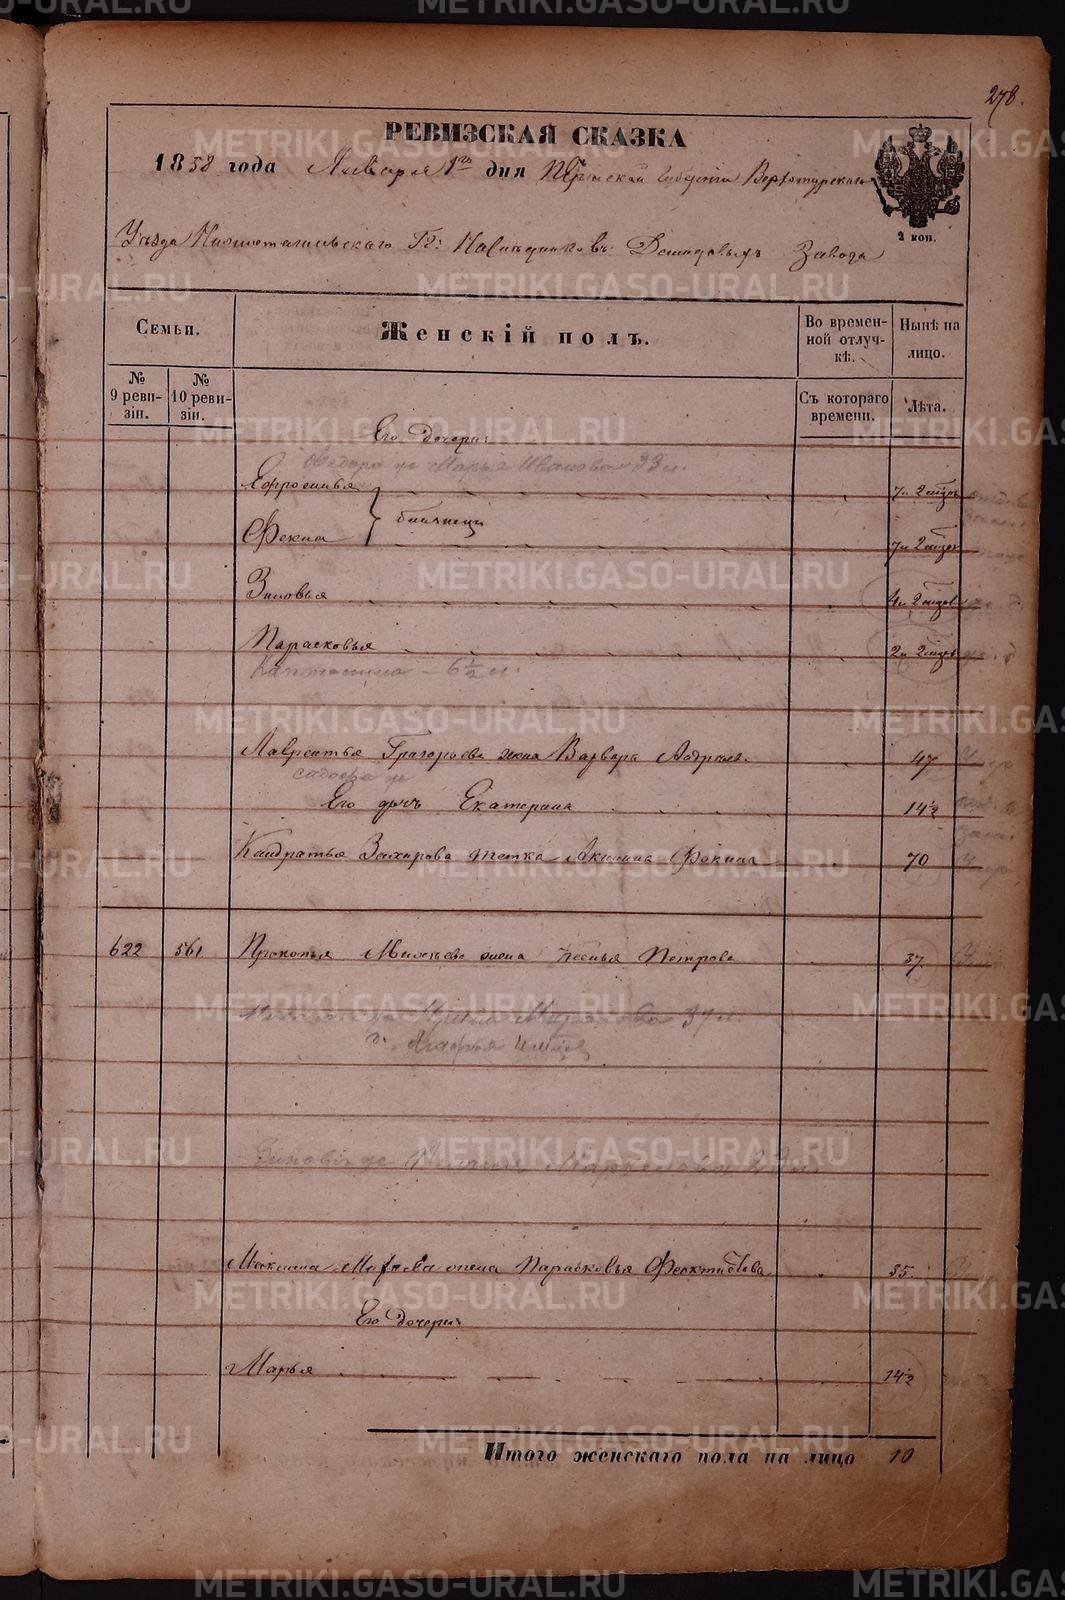 278.
РЕВИЗСКАЯ СКАЗКА
1858 года Января 1го дня Пермской Губерніи Верхотурскаго
2 коп.
Уѣзда Нижнетагильскаго Гг: Наслѣдниковъ Демидовыхъ Завода
Семьи.
Женскій полъ.
Во времен-
ной отлуч-
кѣ.
Нынѣ на
лицо.
№
9 реви-
зіи.
№
10 реви-
зіи.
Съ котораго
времени.
Лѣта.
Его дочери:
Федора же Марья Иванова 33 л.
Ефросинья
7 и 2 мѣр
близнецы
Фекла
7 и 2 мѣр
Зиновья
4 и 2 мѣр
Парасковья
2 и 2 мѣр
Капитолина - 6½ л.
Лаврентья Григорьева жена Варвара
47
Его дочь Екатерина
14½
Кандратья Захарова тетка Акилина Фекила
70
622 561 Прокопья жена Ксенья Петрова
37.
Ирина 37 л.
Агафья
Зиновія же
Максима жена Парасковья Феоктистова
35.
Его дочери:
Марья
14½
Итого женскаго пола на лицо 10
METRIKI.GASO-URAL.RU